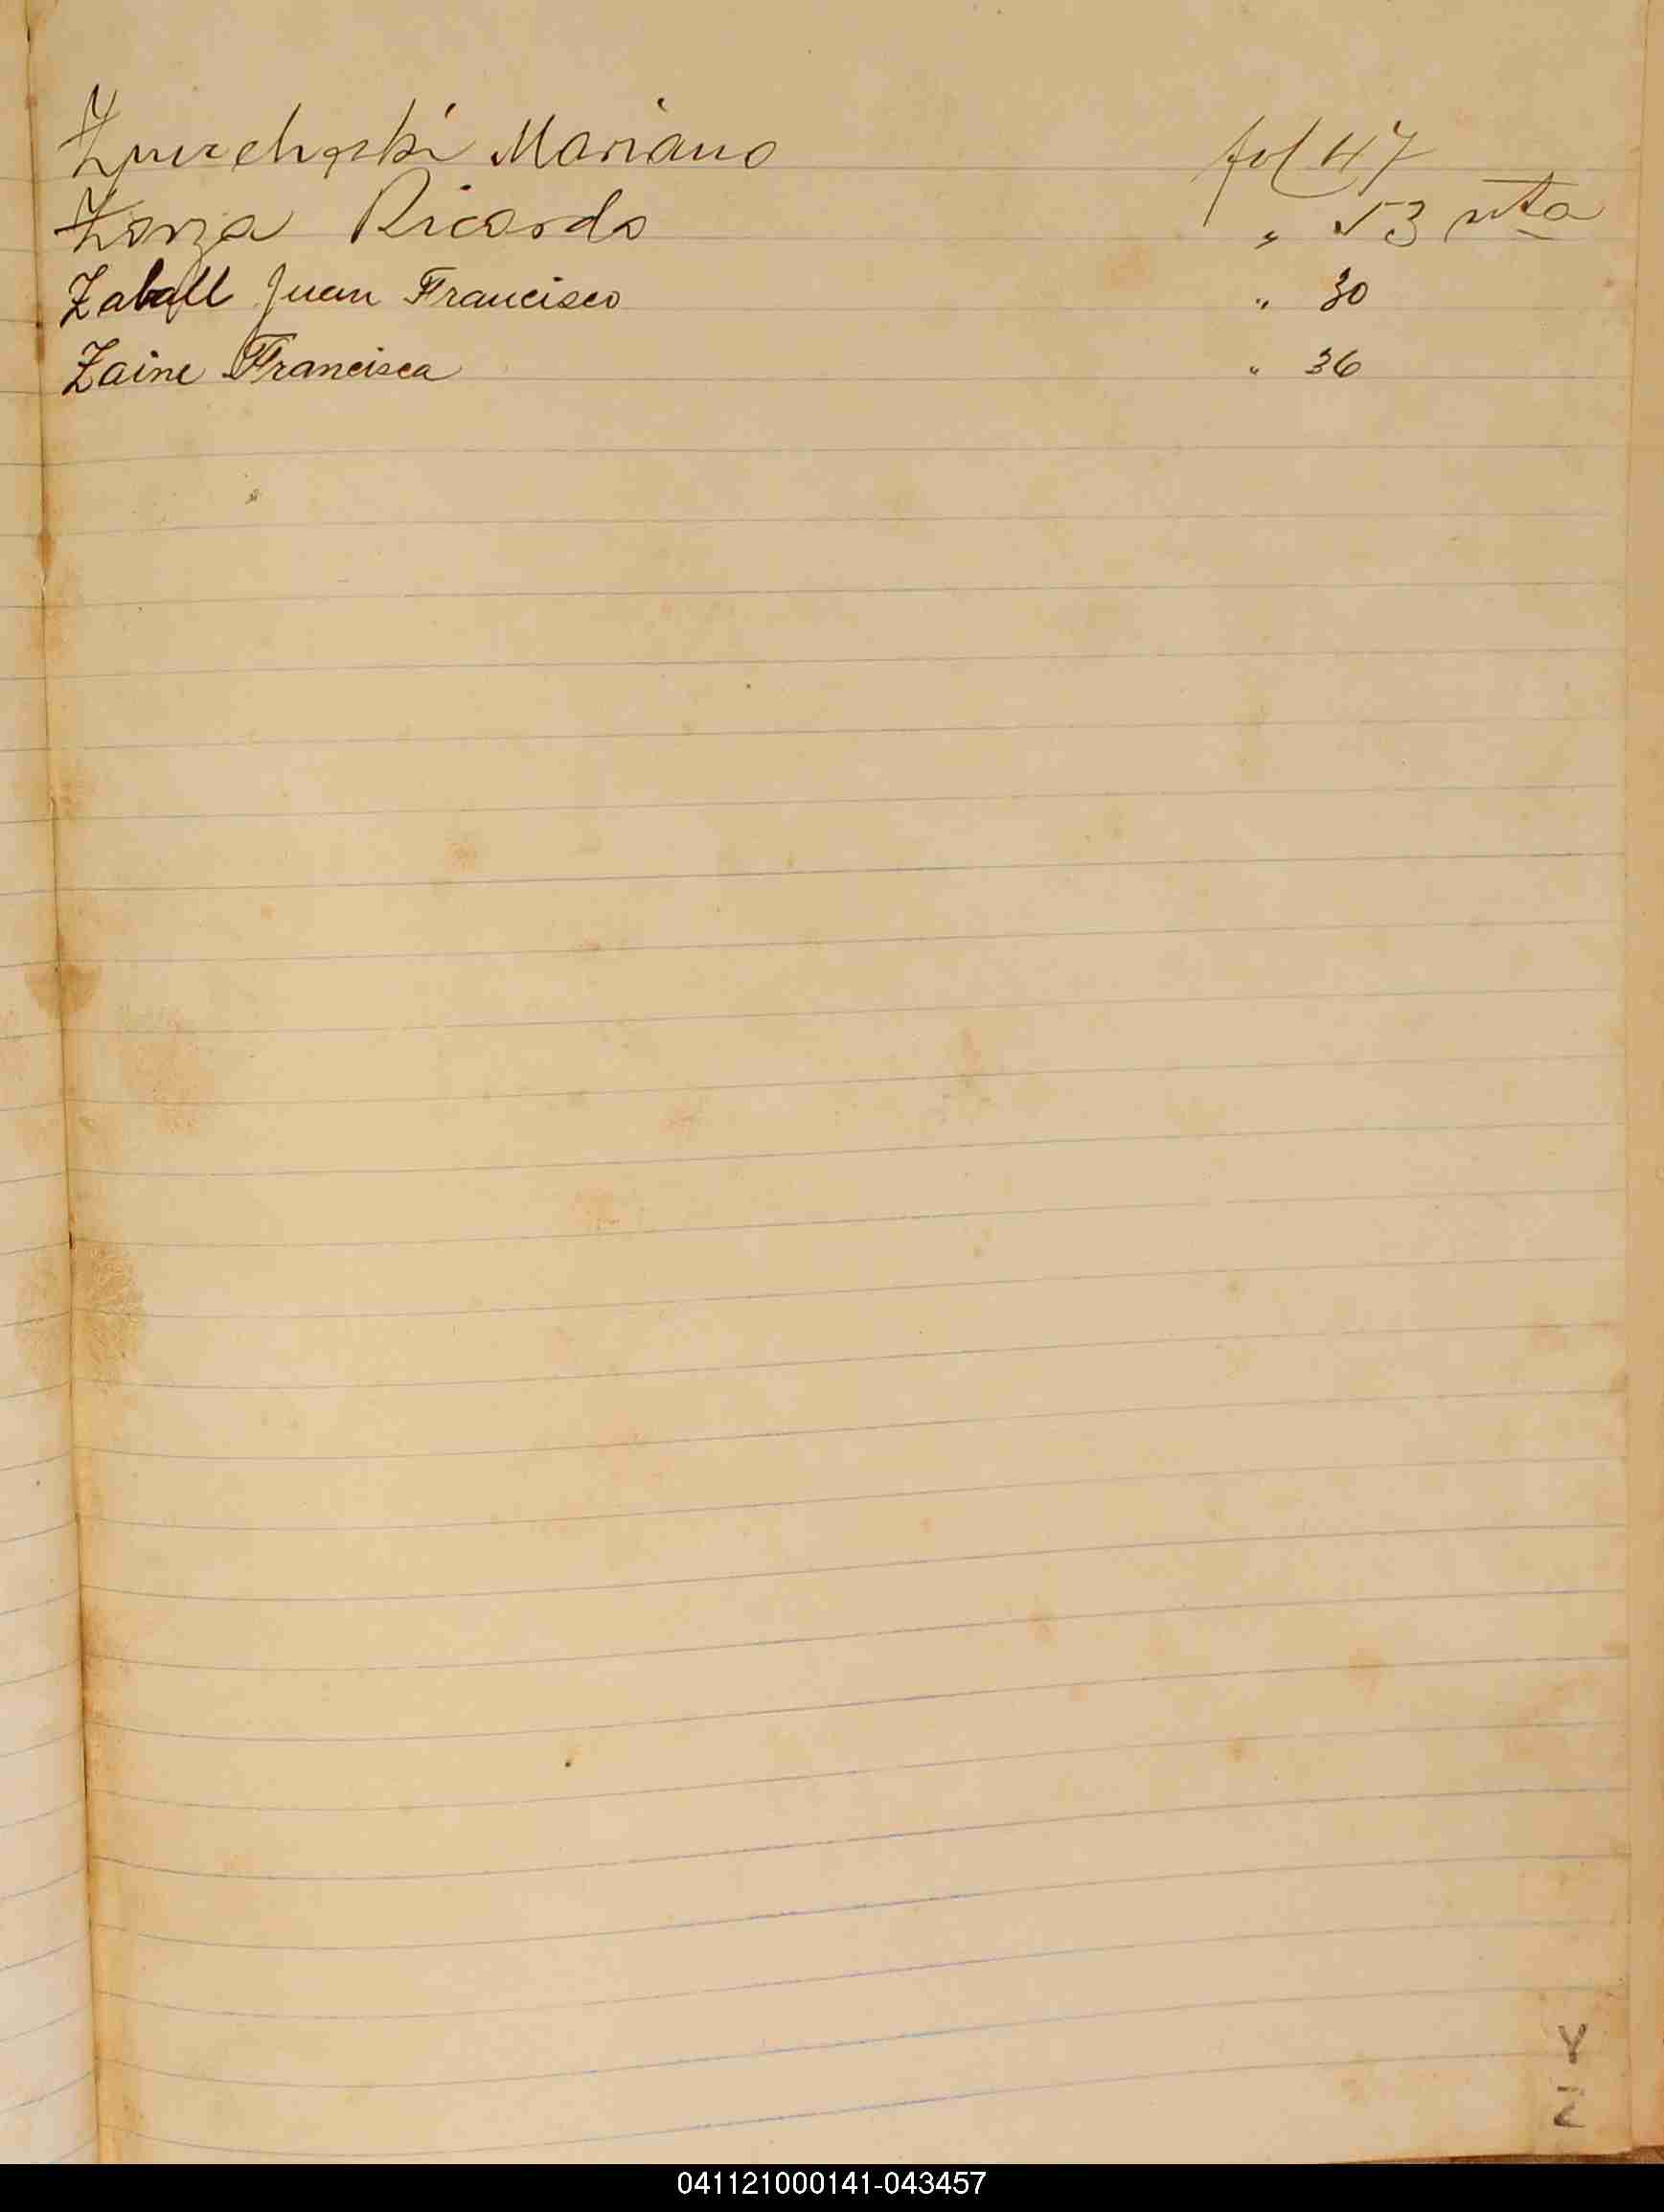 Mariano fol 47
Zorza Ricardo " 53 vta
Zaball Juan Francisco " 30
Zaine Francisca " 36
Y
Z
041121000141-043457